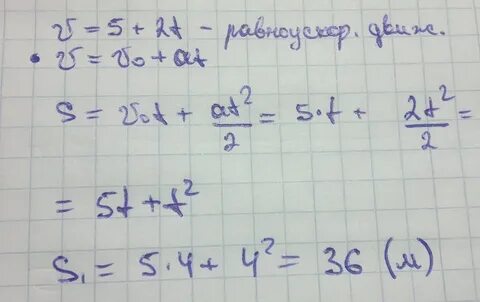 v = 5 + 2t – равноускор. движ.
• v = v₀ + at
S = v₀t + at²/2 = 5·t + 2t²/2 =
= 5t + t²
S₁ = 5·4 + 4² = 36 (м)